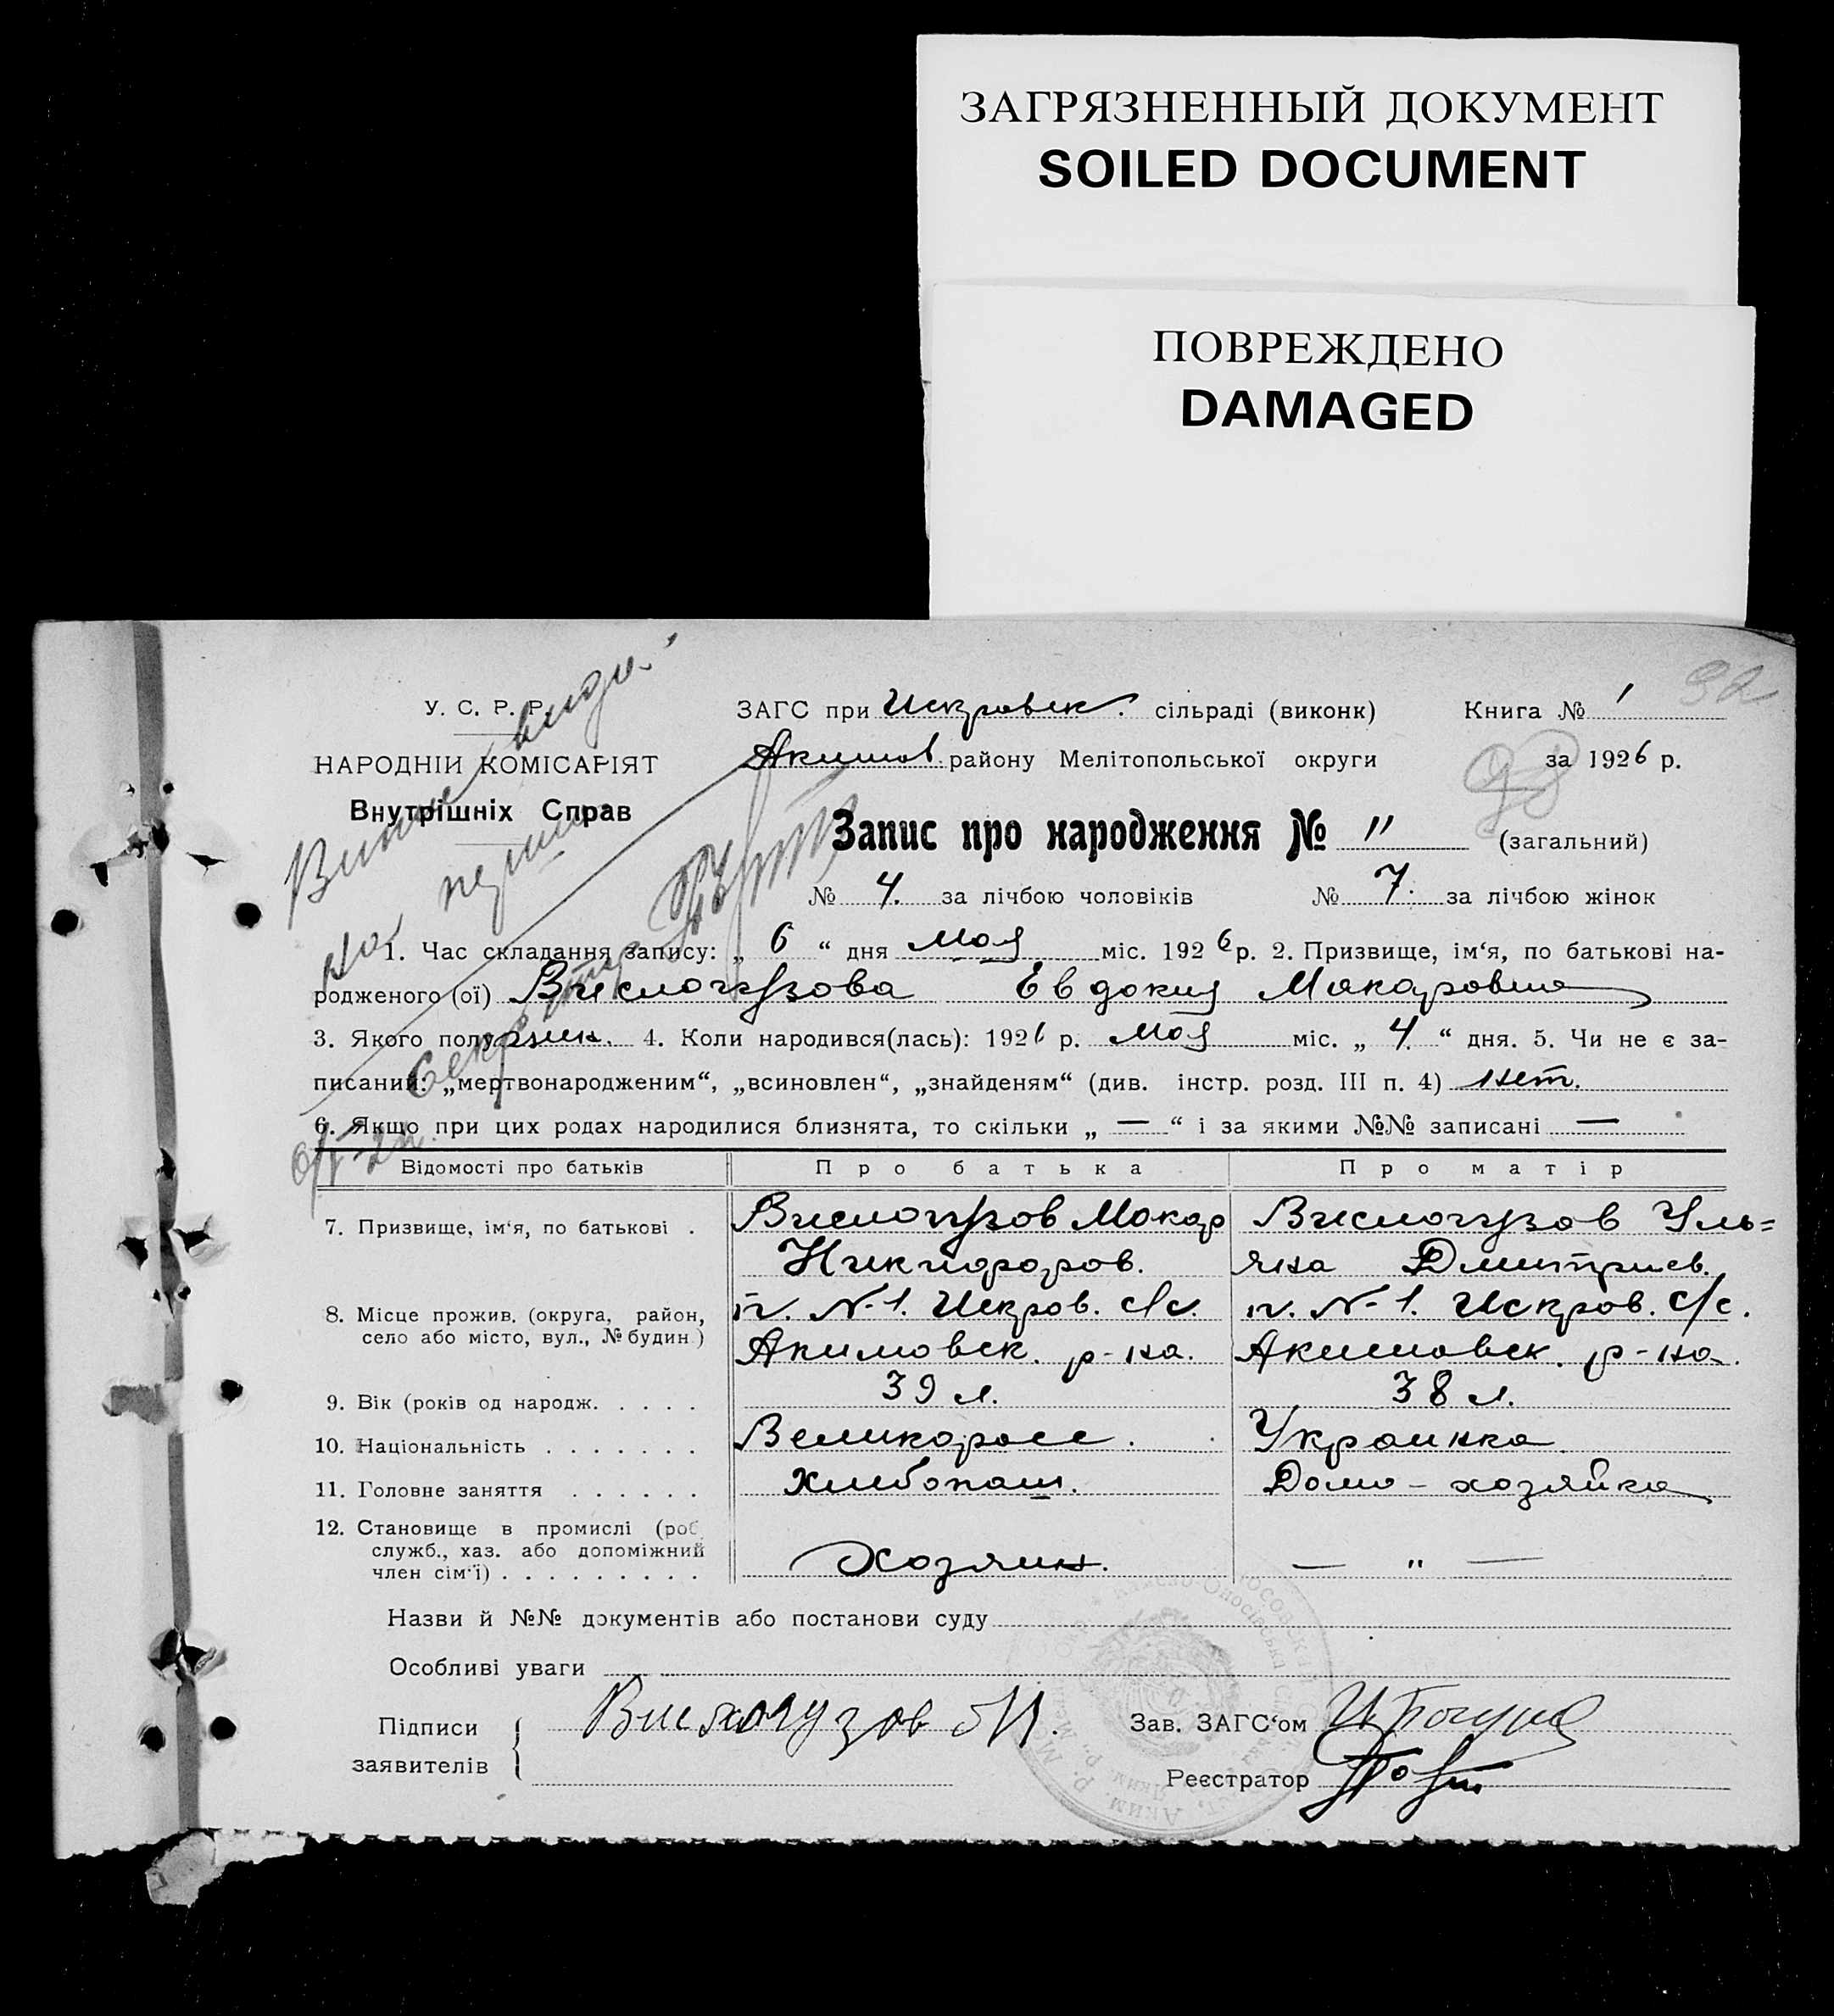 ЗАГРЯЗНЕННЫЙ ДОКУМЕНТ
SOILED DOCUMENT
ПОВРЕЖДЕНО
DAMAGED
92
У. С. Р. Р.
ЗАГС при Искровск. сільраді (виконк) Книга № 1
НАРОДНІЙ КОМІСАРІЯТ
Акимов. району Мелітопольської округи за 1926 р.
Внутрішніх Справ
98
Запис про народження № 11 (загальний)
№ 4. за лічбою чоловіків № 7. за лічбою жінок
1. Час складання запису: „ 6 “ дня Мая міс. 1926 р. 2. Призвище, ім‘я, по батькові на-
родженого (ої) Вислогузова Евдокия Макаровна
3. Якого полу жен. 4. Коли народився(лась): 1926 р. Мая міс. „ 4 “ дня. 5. Чи не є за-
писаний: „мертвонародженим“, „всиновлен“, „знайденям“ (див. інстр. розд. III п. 4) нет.
6. Якщо при цих родах народилися близнята, то скільки „ — “ і за якими №№ записані —
Відомості про батьків Про батька Про матір
7. Призвище, ім‘я, по батькові . Вислогузов Макар Вислогузов Уль=
Никифоров. яна Дмитриев.
8. Місце прожив. (округа, район, п. №-1. Искров. с/с. п. №-1. Искров. с/с.
село або місто, вул., № будин.) Акимовск. р-на. Акимовск. р-на.
9. Вік (років од народж. . . . . 39 л. 38 л.
10. Національність . . . . . . . Великоросс. Украинка
11. Головне заняття . . . . . . Хлебопаш. Домо-хозяйка
12. Становище в промислі (роб.
служб., хаз. або допоміжний
член сім‘ї) . . . . . . . . . Хозяин. — " —
Назви й №№ документів або постанови суду
Особливі уваги
Підписи Вислогузов Зав. ЗАГС‘ом
заявителів
Реєстратор